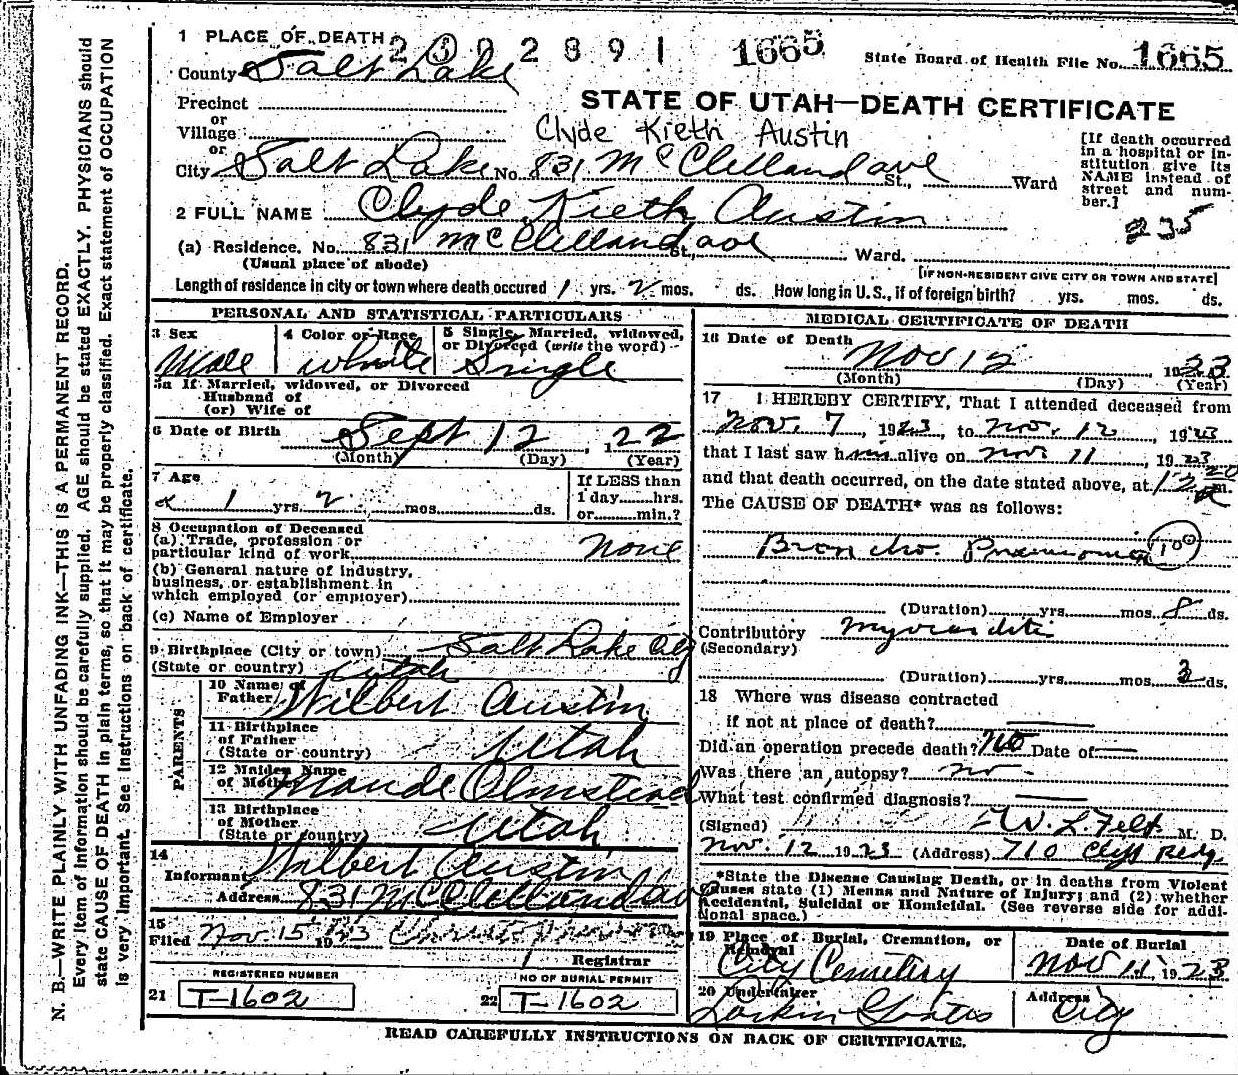 1 PLACE OF DEATH
2302891 1665 State Board of Health File No. 1665
County Salt Lake
STATE OF UTAH—DEATH CERTIFICATE
Precinct
or
Village
or
Clyde Kieth Austin
City Salt Lake No. 831 McClelland ave St., Ward
[If death occurred in a hospital or in-
stitution give its
NAME instead of
street and num-
ber.]
235
2 FULL NAME Clyde Kieth Austin
(a) Residence. No. 831 McClelland ave St., Ward.
(Usual place of abode)
[IF NON-RESIDENT GIVE CITY OR TOWN AND STATE]
Length of residence in city or town where death occured 1 yrs. 2 mos. ds. How long in U.S., if of foreign birth? yrs. mos. ds.
PERSONAL AND STATISTICAL PARTICULARS
3 Sex
Male
4 Color or Race
White
5 Single, Married, widowed,
or Divorced (write the word)
Single
5a If Married, widowed, or Divorced
Husband of
(or) Wife of
6 Date of Birth Sept 12, 1922
(Month) (Day) (Year)
7 Age
1 yrs. 2 mos. ds.
If LESS than
1 day hrs.
or min.?
8 Occupation of Deceased
(a) Trade, profession or
particular kind of work none
(b) General nature of industry,
business, or establishment in
which employed (or employer)
(c) Name of Employer
9 Birthplace (City or town) Salt Lake City
(State or country) Utah
PARENTS
10 Name of
Father Wilbert Austin
11 Birthplace
of Father
(State or country) Utah
12 Maiden Name
of Mother Maude Olmstead
13 Birthplace
of Mother
(State or country) Utah
14
Informant Wilbert Austin
Address 831 McClelland av
15
Filed Nov. 15 1923
Registrar
REGISTERED NUMBER
21 T-1602
NO OF BURIAL PERMIT
22 T-1602
MEDICAL CERTIFICATE OF DEATH
16 Date of Death
Nov 12, 1923
(Month) (Day) (Year)
17 I HEREBY CERTIFY, That I attended deceased from
Nov. 7, 1923, to Nov. 12, 1923
that I last saw him alive on Nov 11, 1923
and that death occurred, on the date stated above, at 12 20 a m.
The CAUSE OF DEATH* was as follows:
Broncho. Pneumonia 100
(Duration) yrs. mos. 8 ds.
Contributory Myocarditis
(Secondary)
(Duration) yrs. mos. 3 ds.
18 Where was disease contracted
if not at place of death?
Did an operation precede death? no Date of
Was there an autopsy? no.
What test confirmed diagnosis?
(Signed) W. L. Felt M. D.
Nov. 12 1923 (Address) 710 Cliff Bldg
*State the Disease Causing Death, or in deaths from Violent
Causes state (1) Means and Nature of Injury; and (2) whether
Accidental, Suicidal or Homicidal. (See reverse side for addi-
tional space.)
19 Place of Burial, Cremation, or
Removal
City Cemetery
Date of Burial
Nov 15 1923
20 Undertaker
Larkin
Address
City
READ CAREFULLY INSTRUCTIONS ON BACK OF CERTIFICATE.
N. B.—WRITE PLAINLY WITH UNFADING INK—THIS IS A PERMANENT RECORD.
Every item of information should be carefully supplied. AGE should be stated EXACTLY. PHYSICIANS should
state CAUSE OF DEATH in plain terms, so that it may be properly classified. Exact statement of OCCUPATION
is very important. See instructions on back of certificate.